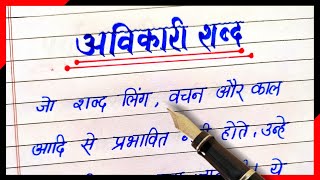 अविकारी शब्द
जो शब्द लिंग, वचन और काल
आदि से प्रभावित होते, उन्हे
ये